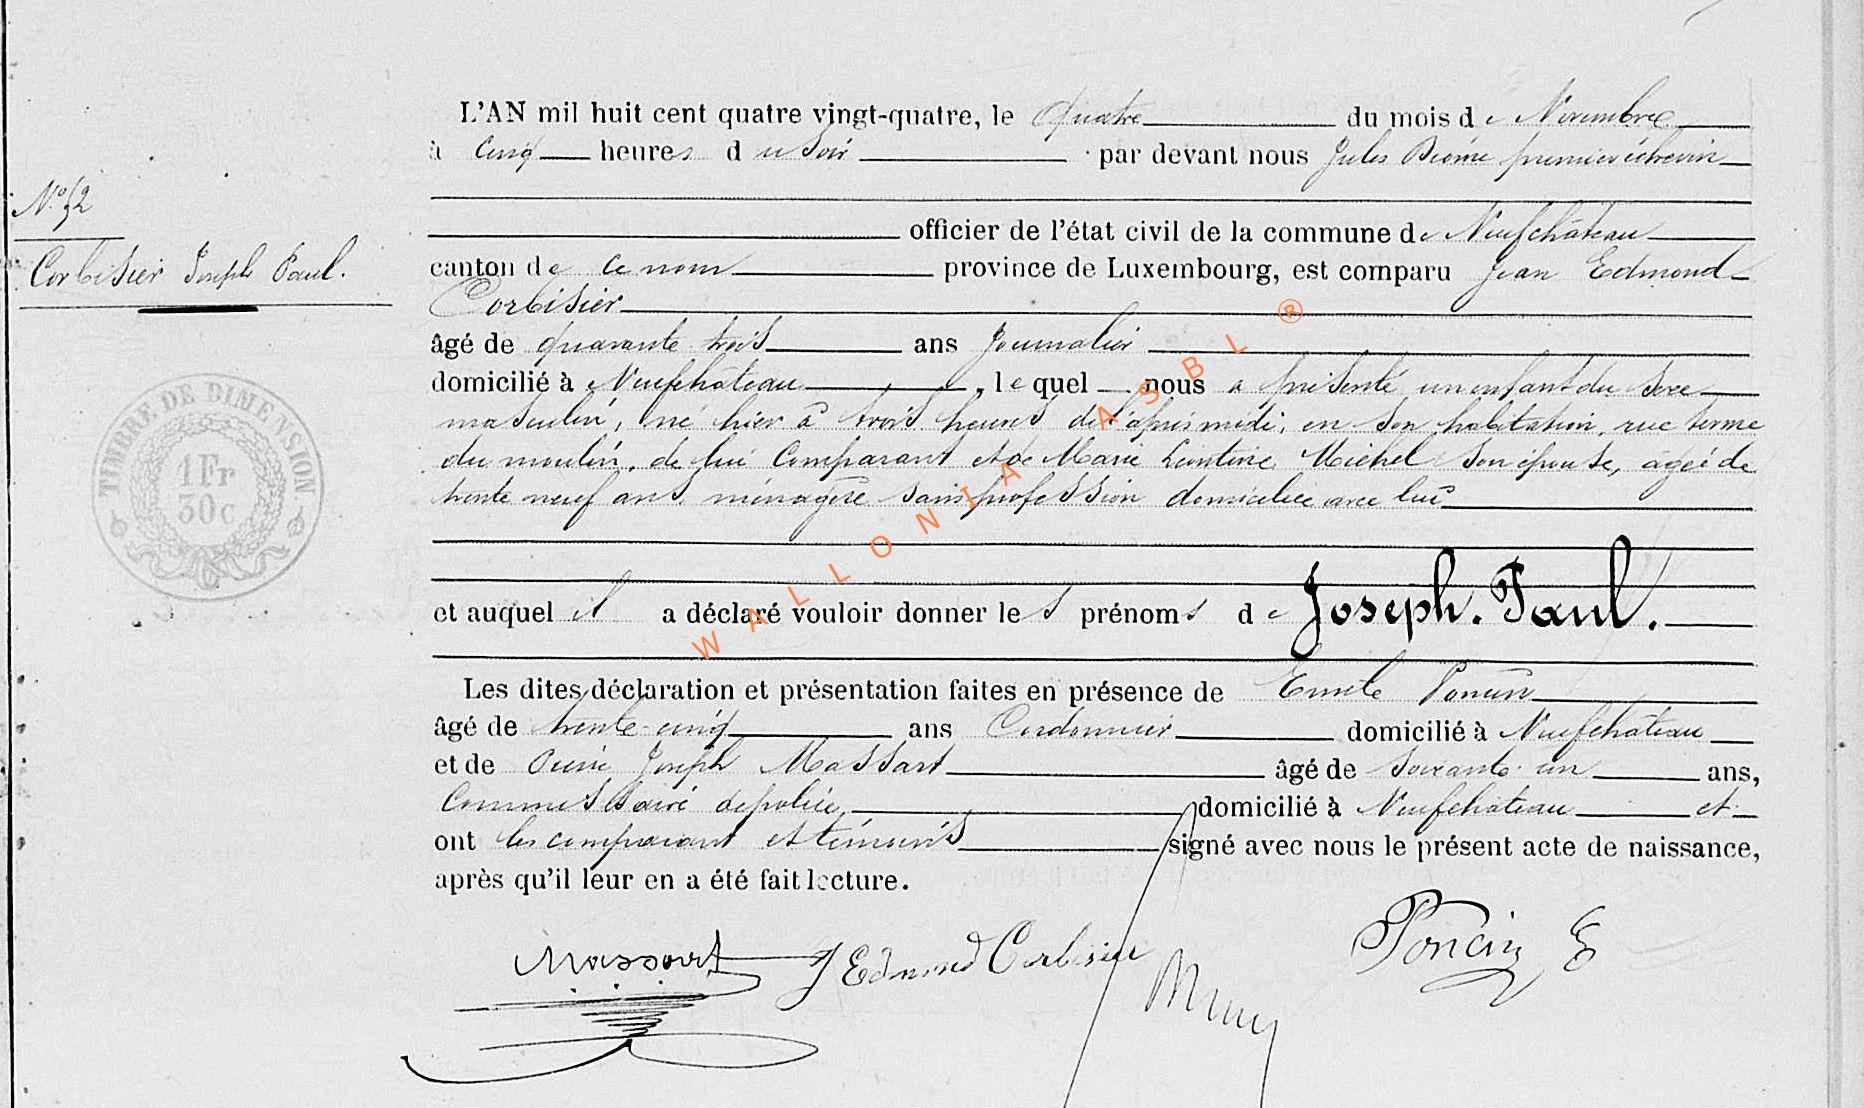 L'AN mil huit cent quatre vingt-quatre, le quatre du mois de Novembre
à cinq heures du soir par devant nous Jules premier échevin
officier de l'état civil de la commune de Neufchâteau
canton de ce nom province de Luxembourg, est comparu Jean Edmond
Corbisier
âgé de quarante trois ans Journalier
domicilié à Neufchâteau, lequel nous a présenté un enfant du sexe
masculin, né hier à trois heures de l'après midi, en son habitation, rue terme
du moulin, de lui comparant et de Marie Léontine Michel son épouse, âgée de
trente neuf ans ménagère sans profession domiciliée avec lui
et auquel il a déclaré vouloir donner les prénoms de Joseph. Paul.
Les dites déclaration et présentation faites en présence de Emile Poncin
âgé de trente-cinq ans Cordonnier domicilié à Neufchâteau
et de Pierre Joseph Massart âgé de soixante un ans,
Commissaire de police domicilié à Neufchâteau et
ont les comparant et témoins signé avec nous le présent acte de naissance,
après qu'il leur en a été fait lecture.
Massart J Edmond Corbisier Poncin E
N° 52
Corbisier Joseph Paul.
TIMBRE DE DIMENSION
1 Fr
30c
WALLONIA ASBL ®